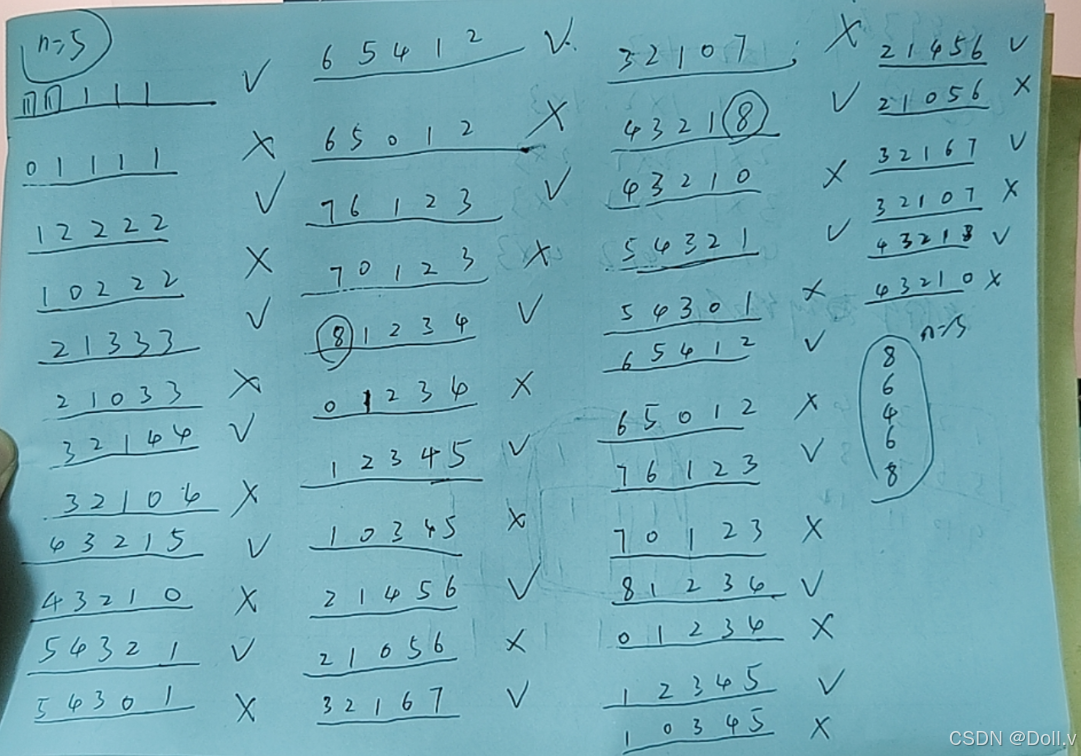 n=5
1 1 1 1 1 √
0 1 1 1 1 ×
1 2 2 2 2 √
1 0 2 2 2 ×
2 1 3 3 3 √
2 1 0 3 3 ×
3 2 1 4 4 √
3 2 1 0 4 ×
4 3 2 1 5 √
4 3 2 1 0 ×
5 4 3 2 1 √
5 4 3 0 1 ×
6 5 4 1 2 √
6 5 0 1 2 ×
7 6 1 2 3 √
7 0 1 2 3 ×
8 1 2 3 4 √
0 1 2 3 4 ×
1 2 3 4 5 √
1 0 3 4 5 ×
2 1 4 5 6 √
2 1 0 5 6 ×
3 2 1 6 7 √
3 2 1 0 7 ×
4 3 2 1 8 √
4 3 2 1 0 ×
5 4 3 2 1 √
5 4 3 0 1 ×
6 5 4 1 2 √
6 5 0 1 2 ×
7 6 1 2 3 √
7 0 1 2 3 ×
8 1 2 3 4 √
0 1 2 3 4 ×
1 2 3 4 5 √
1 0 3 4 5 ×
2 1 4 5 6 √
2 1 0 5 6 ×
3 2 1 6 7 √
3 2 1 0 7 ×
4 3 2 1 8 √
4 3 2 1 0 ×
n=5
8
6
4
6
8
CSDN @Doll.v